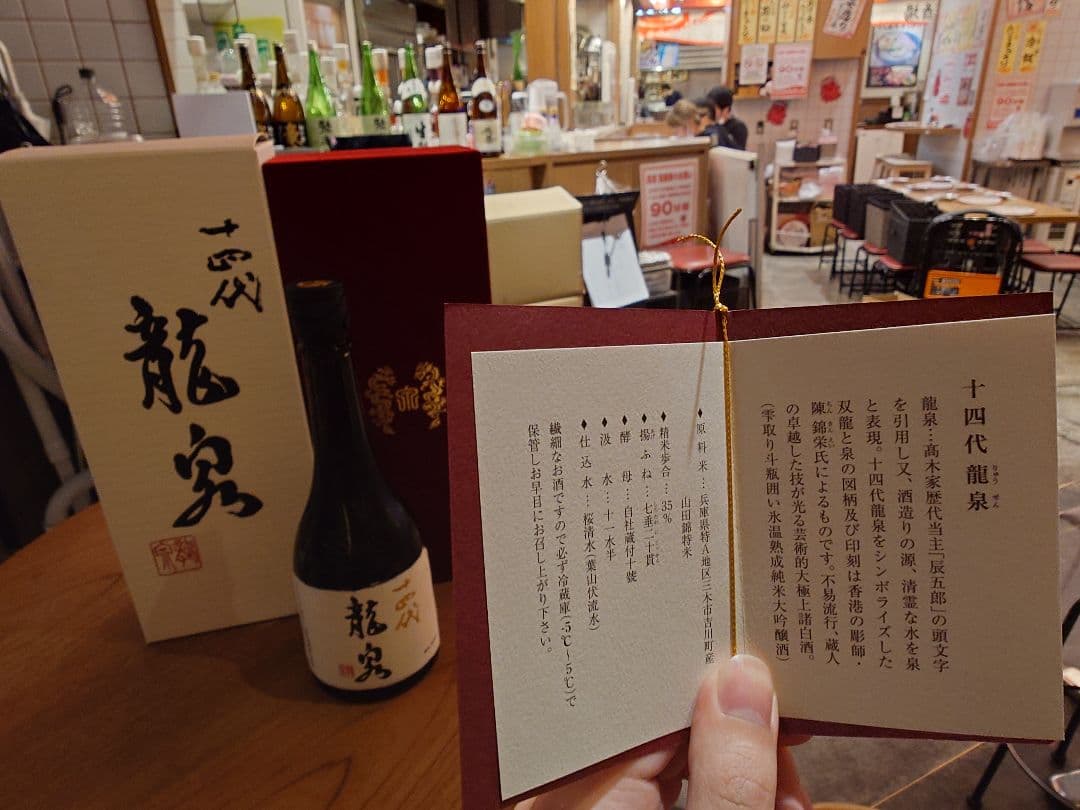 十四代
龍泉
十四代
龍泉
十四代龍泉
りゅうせん
龍泉…髙木家歴代当主「辰五郎」の頭文字
を引用し又、酒造りの源、清霊な水を泉
と表現。十四代龍泉をシンボライズした
双龍と泉の図柄及び印刻は香港の彫師・
陳錦栄氏によるものです。不易流行、蔵人
ちんきんえい
の卓越した技が光る芸術的大極上諸白酒。
(雫取り斗瓶囲い氷温熟成純米大吟醸酒)
♦原料米…兵庫県特A地区三木市吉川町産
山田錦特米
♦精米歩合…35%
♦揚ふね…七垂二十貫
♦酵母…自社蔵付十號
♦汲水…十一水半
♦仕込水…桜清水(葉山伏流水)
繊細なお酒ですので必ず冷蔵庫(-5℃〜5℃)で
保管しお早目にお召し上がり下さい。
90分制